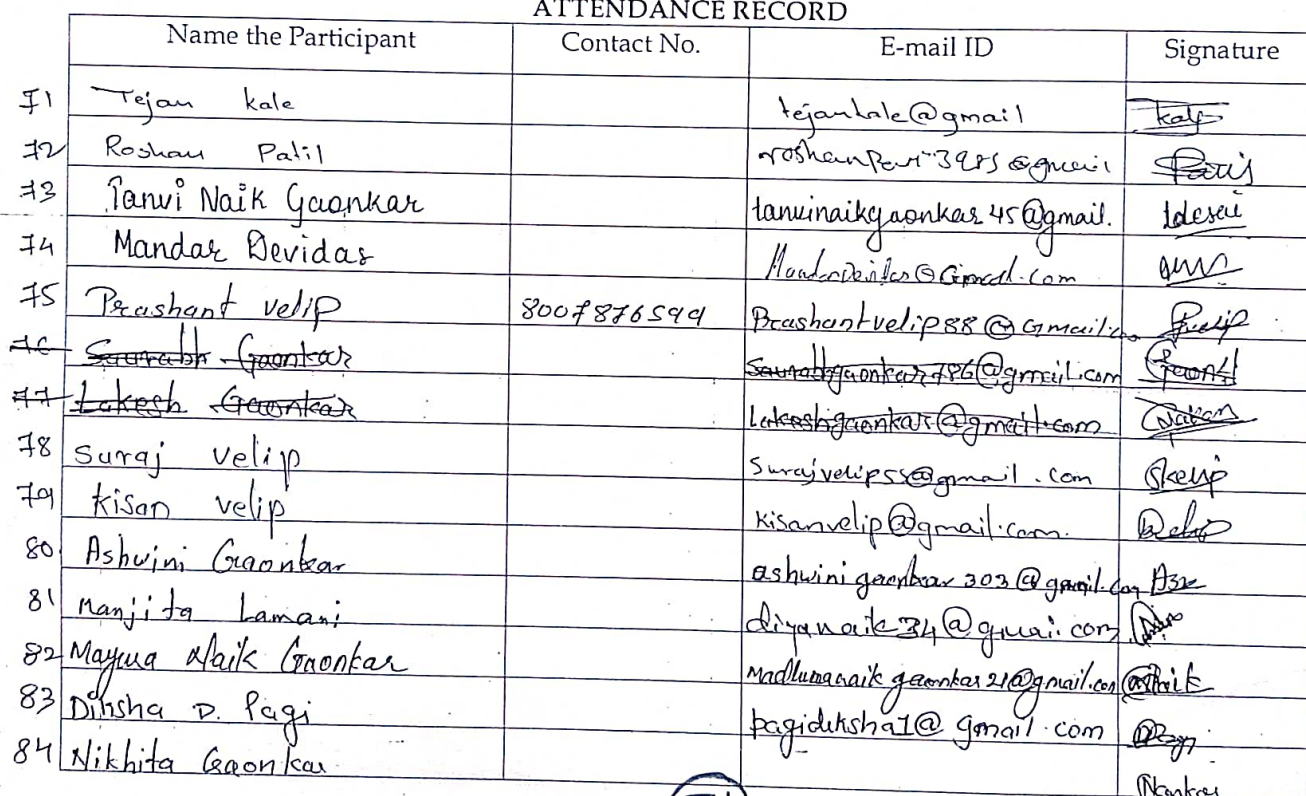 ATTENDANCE RECORD
Name the Participant Contact No. E-mail ID Signature
71 Tejan kale tejankale@gmail kale
72 Roshan Patil @gmail
73 Tanvi Naik Gaonkar tanvinaikgaonkar45@gmail. tdesai
74 Mandar Devidas
75 Prashant velip 8007876599 Prashantvelip88@Gmail.co Pvelip
76 Saurabh Gaonkar Saurabhgaonkar786@gmail.com
77 Lakesh Gaonkar Lakeshgaonkar@gmail.com
78 Suraj velip Surajvelip55@gmail.com Skelip
79 kisan velip kisanvelip@gmail.com.
80 Ashwini Gaonkar ashwinigaonkar303@gmail.com
81 Manjita Lamani diyanaik34@gmai.com
82 Naik Gaonkar
83 Diksha D. Pagi pagidiksha1@gmail.com
84 Nikhita Gaonkar